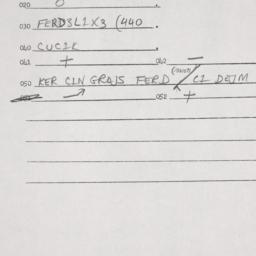 020 0
030 FERD3L1X3 (440 .
040 CUC1K .
041 + 042 —
050 KER C1N GRAJS FERD / C1 DEJM
052 +